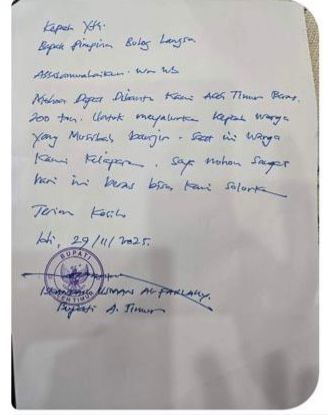 Kepada Yth.
Bapak Pimpinan Bulog Langsa
Assalamualaikum. Wr Wb
Mohon Dapat Dibantu Kami Aceh Timur Beras.
200 ton. Untuk menyalurkan kepada warga
yang Musibah banjir. Saat ini warga
Kami Kelaparan. Saya mohon sangat
hari ini beras bisa kami salurkan
Terima Kasih
Idi, 29/11/2025.
BUPATI
ACEH TIMUR
ISKANDAR USMAN AL-FARLAKY.
Bupati A. Timur